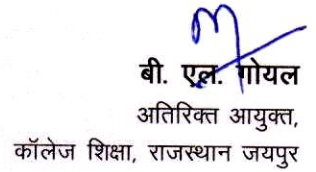 बी. एल. गोयल
अतिरिक्त आयुक्त,
कॉलेज शिक्षा, राजस्थान जयपुर